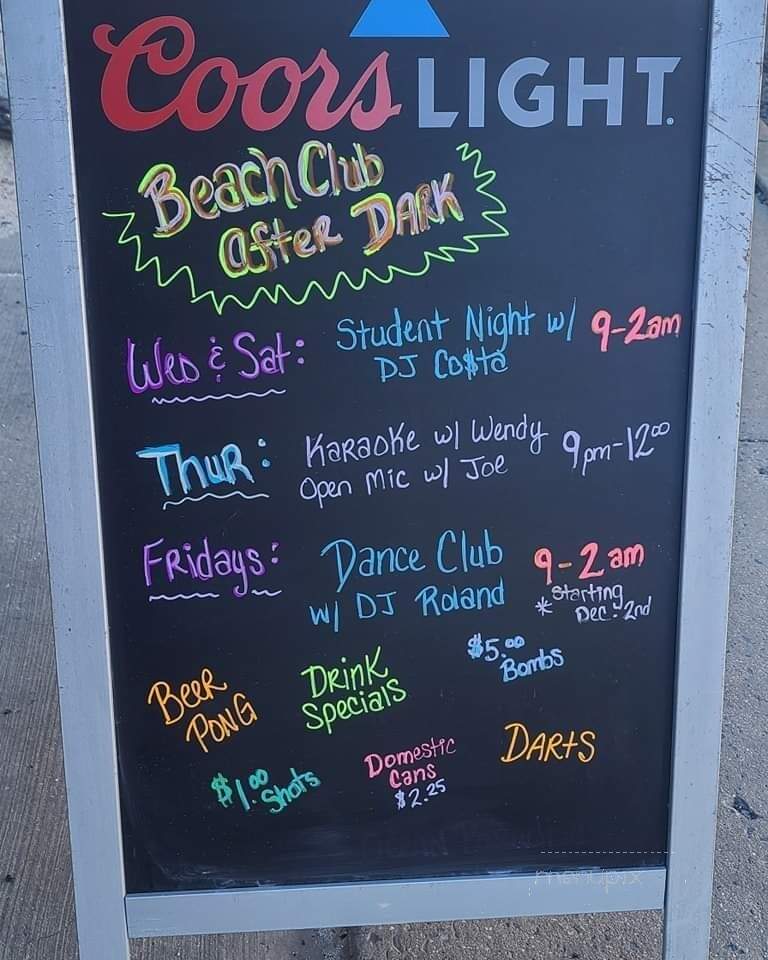 Coors LIGHT.
Beach Club
After DARK
Wed & Sat: Student Night w/ 9-2am
DJ Co$ta
Thur: Karaoke w/ Wendy 9pm-12⁰⁰
Open Mic w/ Joe
Fridays: Dance Club 9-2am
w/ DJ Roland *Starting
Dec. 2nd
$5.⁰⁰
Bombs
Beer
Pong
Drink
Specials
Darts
$1.⁰⁰ Shots
Domestic
Cans
$2.25
menupix